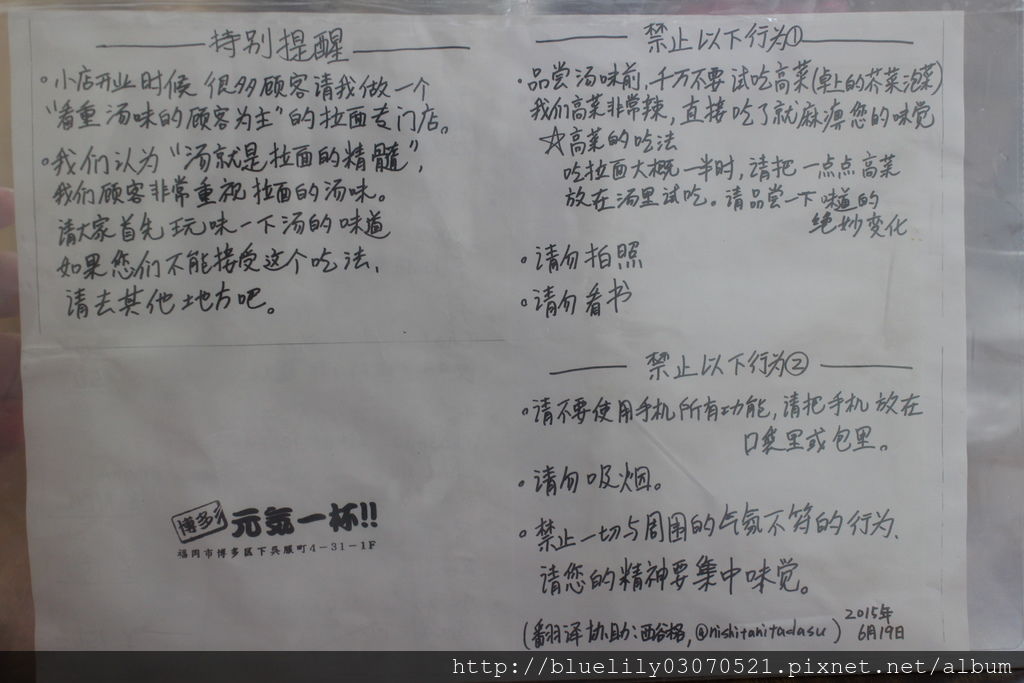 特别提醒
。小店开业时候 很多顾客请我做一个
“看重汤味的顾客为主”的拉面专门店。
。我们认为“汤就是拉面的精髓”,
我们顾客非常重视拉面的汤味。
请大家首先玩味一下汤的味道
如果您们不能接受这个吃法、
请去其他地方吧。
博多
元気一杯!!
福岡市博多区下呉服町4-31-1F
禁止以下行为①
・品尝汤味前,千万不要试吃高菜(卓上的芥菜泡菜)
我们高菜非常辣,直接吃了就麻痹您的味觉
☆高菜的吃法
吃拉面大概一半时,请把一点点高菜
放在汤里试吃。请品尝一下味道的
绝妙变化
・请勿拍照
・请勿看书
禁止以下行为②
・请不要使用手机所有功能,请把手机放在
口袋里或包里。
・请勿吸烟。
・禁止一切与周围的气氛不符的行为、
请您的精神要集中味觉。
(翻译协助:西谷格,@nishitanitadasu)
2015年
6月19日
http://bluelily03070521.pixnet.net/album